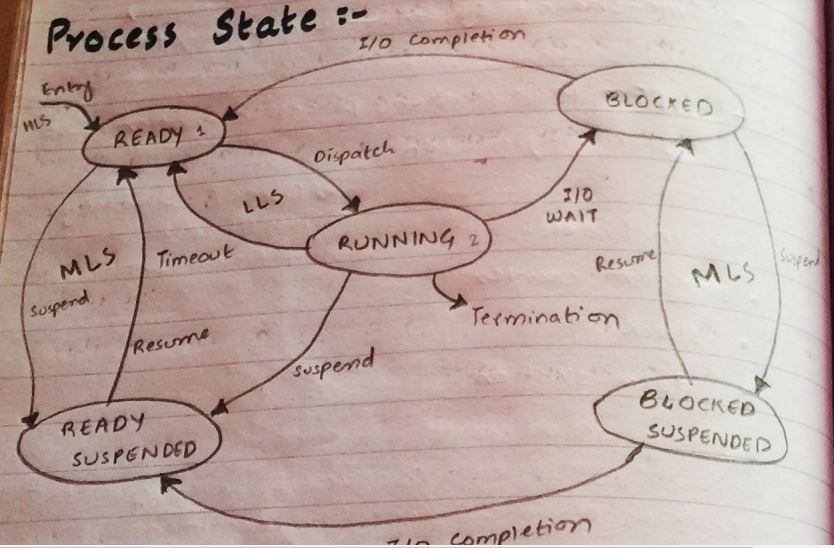 Process State :-
I/O Completion
Entry
HLS
READY 1
BLOCKED
Dispatch
LLS
I/O
WAIT
RUNNING 2
MLS
Timeout
Resume
MLS
Suspend
Suspend
Termination
Resume
Suspend
READY
SUSPENDED
BLOCKED
SUSPENDED
I/O Completion